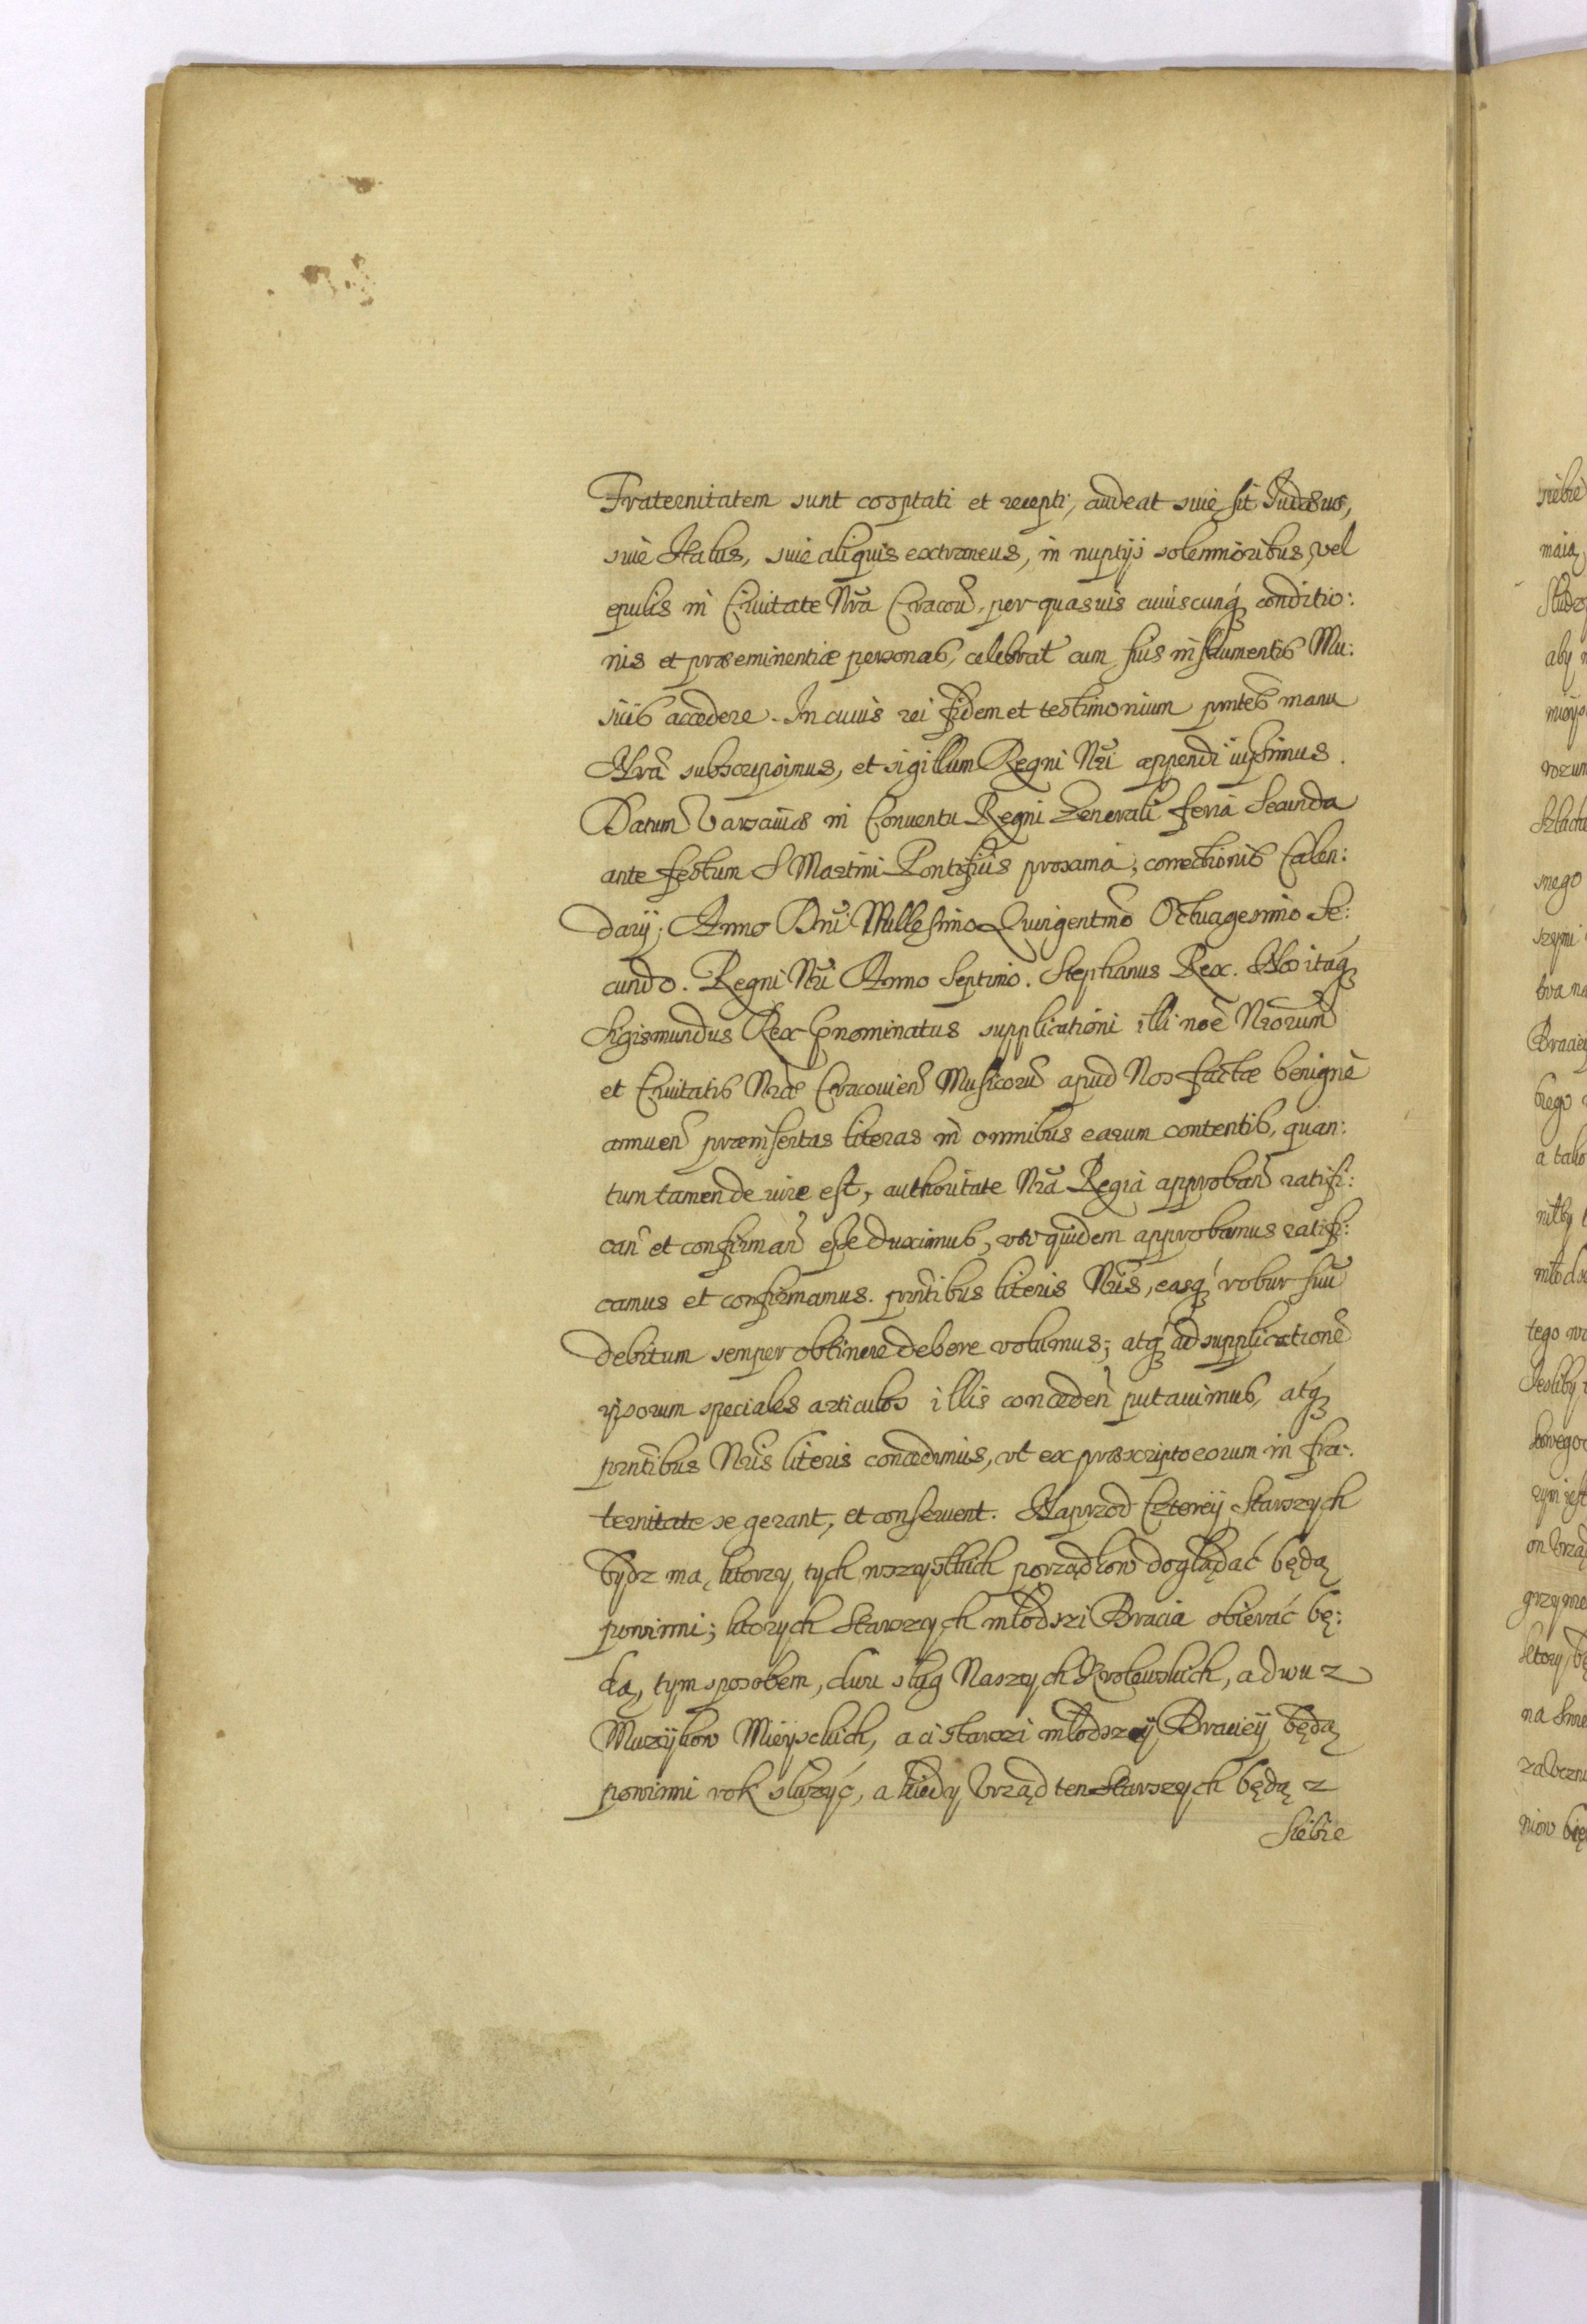 Fraternitatem sunt cooptati et recepti, audeat siue sit Judæus,
siue Italus, siue aliquis extraneus, in nuptijs solemnioribus, vel
epulis in Ciuitate Nrã Cracou̅, per quasuis cuiuscunq́ conditio:
nis et præeminentiæ personas, celebrat̃ cum suis instrumentis Mu:
sicis accedere. In cuius rei fidem et testimonium pn̅tes manu
Nrã subscripsimus, et sigillum Regni Nr̃i appendi iussimus.
Datum Varsauiæ in Conuentu Regni Generali feria Secunda
ante festum S Martini Pontificis proxima, correctionis Calen:
darij, Anno Dn̅i Millesimo Quingentmo Octuagesimo Se:
cundo. Regni Nr̃i Anno Septimo. Stephanus Rex. Nos itaq́
Sigismundus Rex p̅nominatus supplicationi illi noe̅ Nr̃orum
et Ciuitatis Nr̃æ Cracouien̅ Musicoru̅ apud Nos factæ benignè
annuen̅ præinsertas literas in omnibus earum contentis, quan:
tum tamen de iure est, authoritate Nrã Regia approban̅ ratifi:
can̅ et confirman̅ esse duximus, vti quidem approbamus ratifi:
camus et confirmamus. pn̅tibus literis Nr̃is, easq́ robur suu̅
debitum semper obtinere debere volumus; atq́ ad supplicatione̅
ipsorum speciales articulos illis conceden̅ putauimus, atq́
prn̅tibus Nr̃is literis concedimus, vt ex præscripto eorum in fra:
ternitate se gerant, et conseruent. Naprzod Czterey Starszych
bydz ma, ktorzy tych wszystkich porządkow doglądać będą
powinni; ktorych Starszych młodszi Bracia obierać bę:
dą, tym sposobem, dwu sług Naszych Krolewskich, a dwu z
Muzykow Mieyskich, a ci starszi młodszey Braciey będą
powinni rok służyć, a kiedy Vrząd ten Starszych będą z
siebie